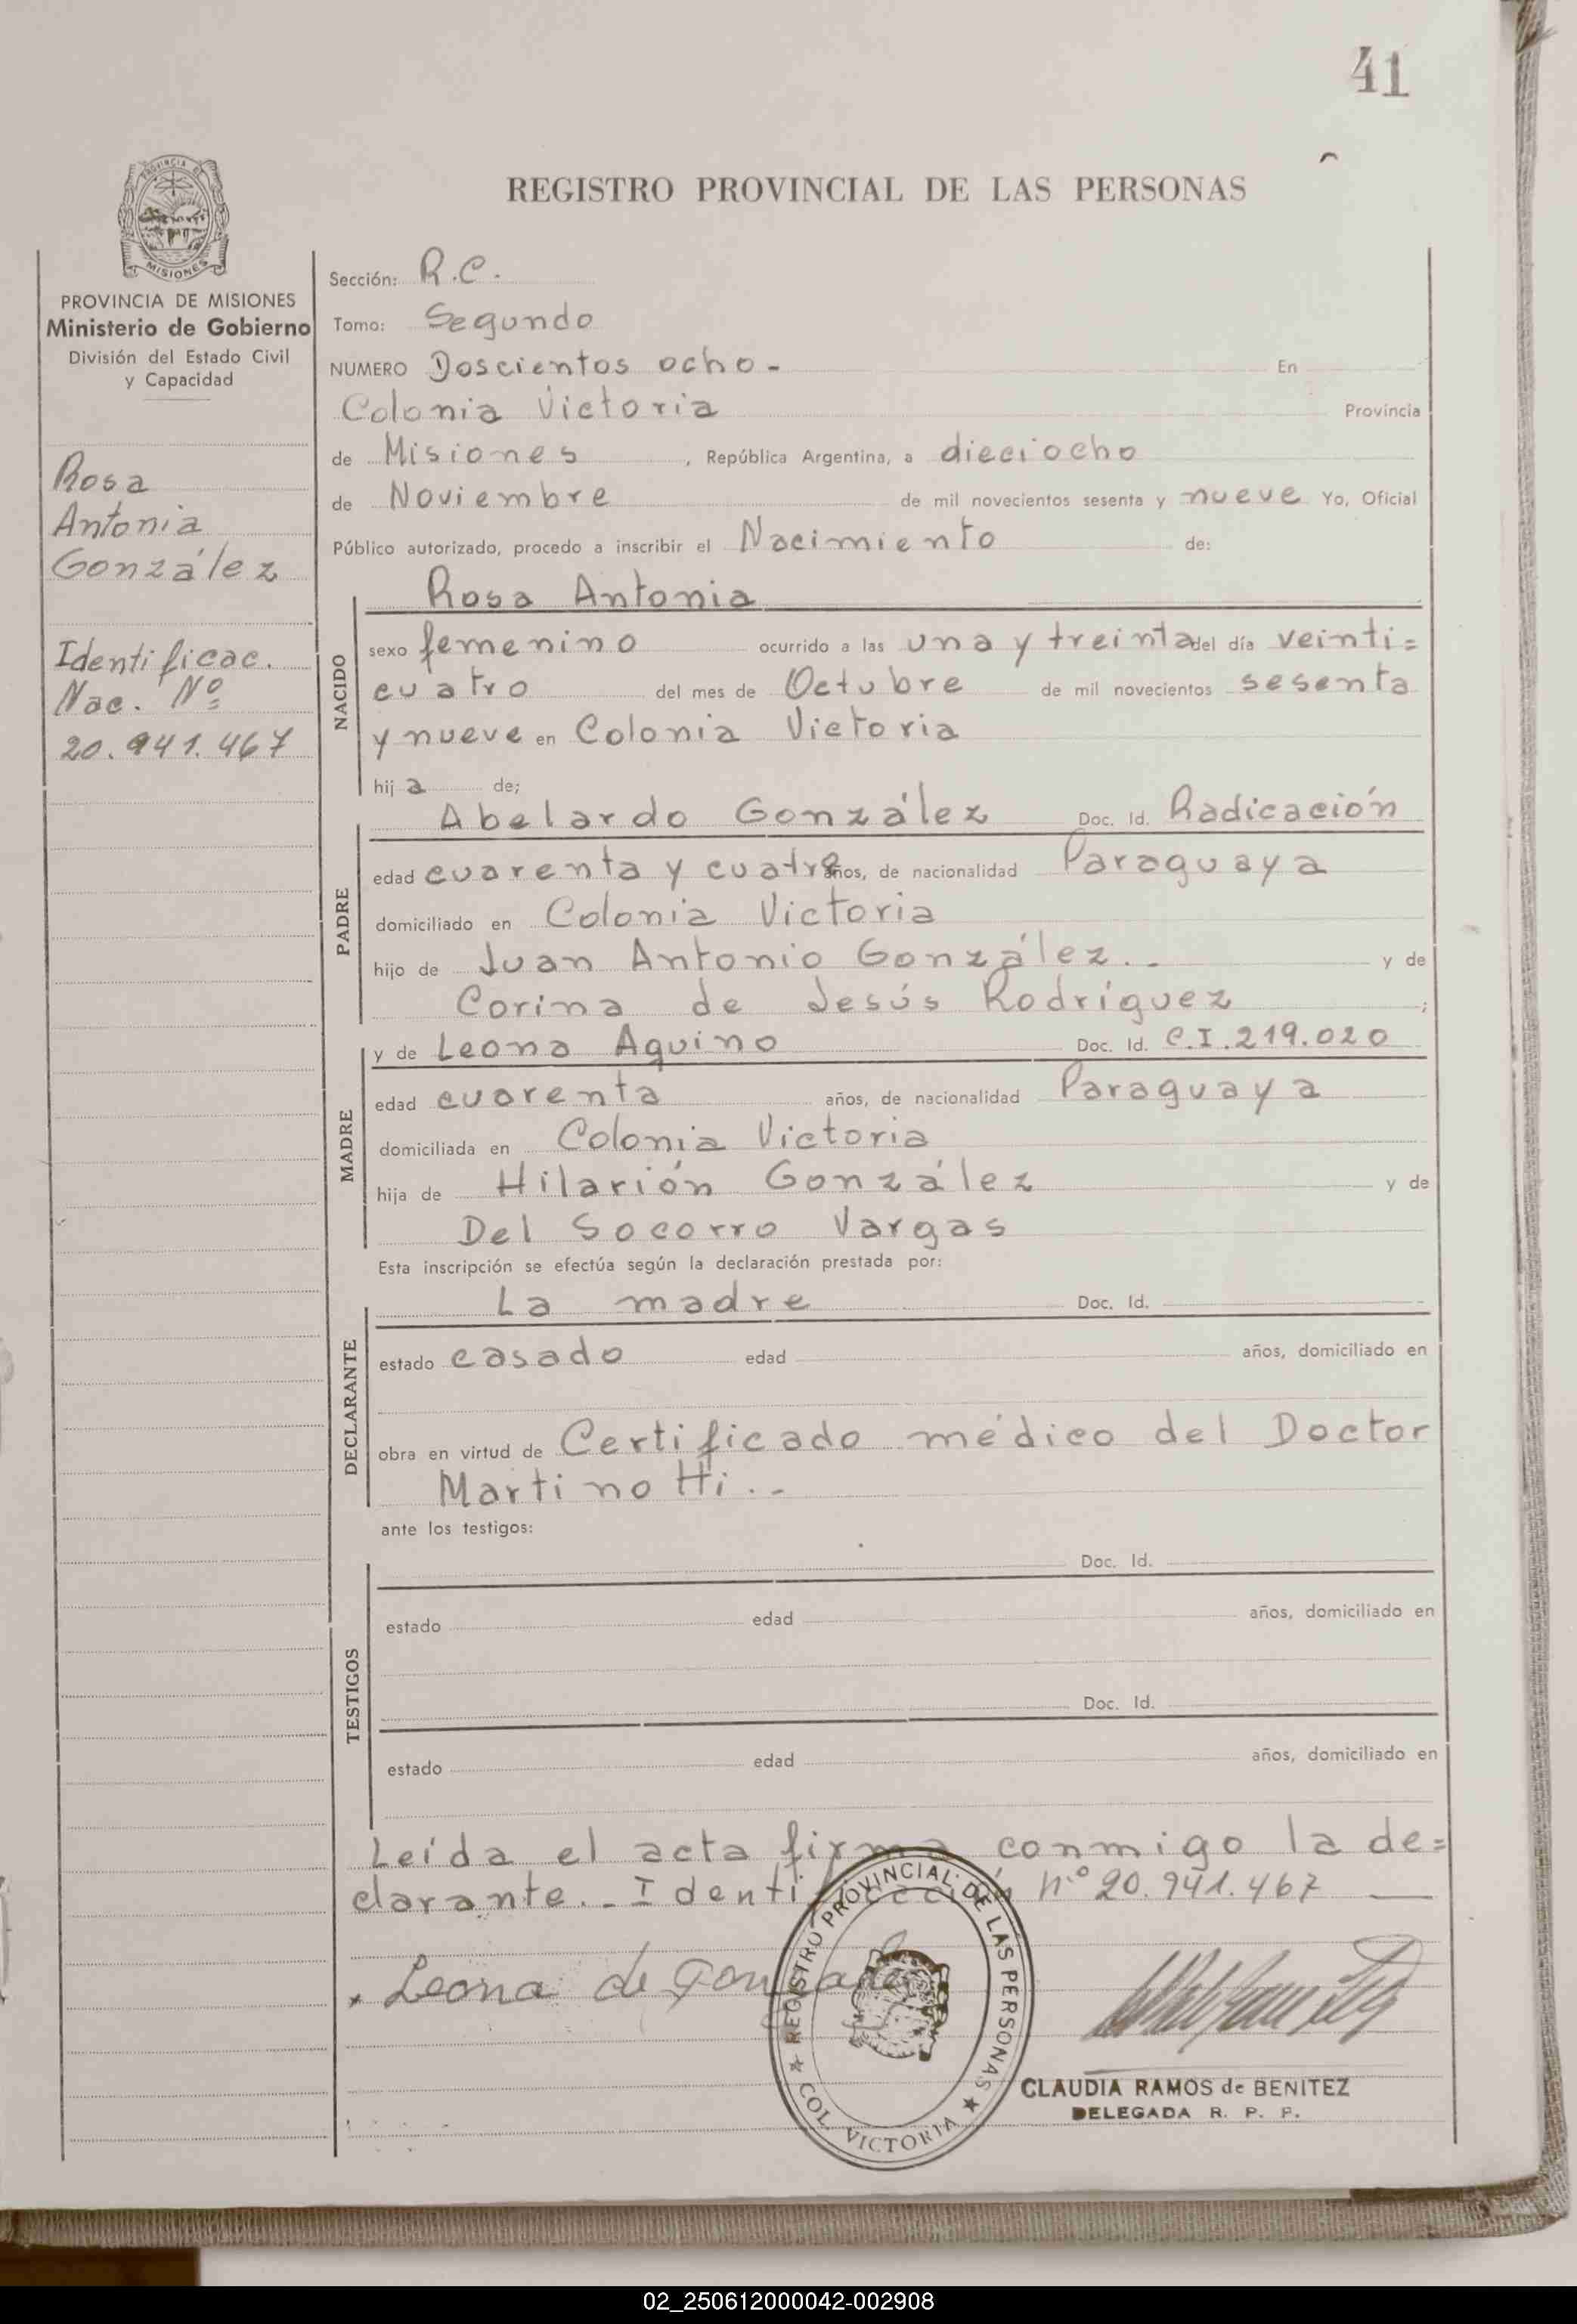 41
REGISTRO PROVINCIAL DE LAS PERSONAS
PROVINCIA
MISIONES
PROVINCIA DE MISIONES
Ministerio de Gobierno
División del Estado Civil
y Capacidad
Rosa
Antonia
González
Identificac.
Nac. Nº
20.941.467
Sección: R.C.
Tomo: Segundo
NUMERO Doscientos ocho - En
Colonia Victoria Provincia
de Misiones, República Argentina, a dieciocho
de Noviembre de mil novecientos sesenta y nueve Yo, Oficial
Público autorizado, procedo a inscribir el Nacimiento de:
NACIDO
Rosa Antonia
sexo femenino ocurrido a las una y treinta del día veinti=
cuatro del mes de Octubre de mil novecientos sesenta
y nueve en Colonia Victoria
hija de;
PADRE
Abelardo González Doc. Id. Radicación
edad cuarenta y cuatro años, de nacionalidad Paraguaya
domiciliado en Colonia Victoria
hijo de Juan Antonio González.- y de
Corina de Jesús Rodríguez ;
MADRE
y de Leona Aquino Doc. Id. C.I.219.020
edad cuarenta años, de nacionalidad Paraguaya
domiciliada en Colonia Victoria
hija de Hilarión González y de
Del Socorro Vargas
Esta inscripción se efectúa según la declaración prestada por:
DECLARANTE
La madre Doc. Id.
estado casado edad años, domiciliado en
obra en virtud de Certificado médico del Doctor
Martinotti.-
ante los testigos:
TESTIGOS
Doc. Id.
estado edad años, domiciliado en
Doc. Id.
estado edad años, domiciliado en
Leída el acta firma conmigo la de=
clarante.- Identificación nº 20.941.467
Leona de Gonzalez
REGISTRO PROVINCIAL DE LAS PERSONAS
COL. VICTORIA
CLAUDIA RAMOS de BENITEZ
DELEGADA R. P. P.
02_250612000042-002908